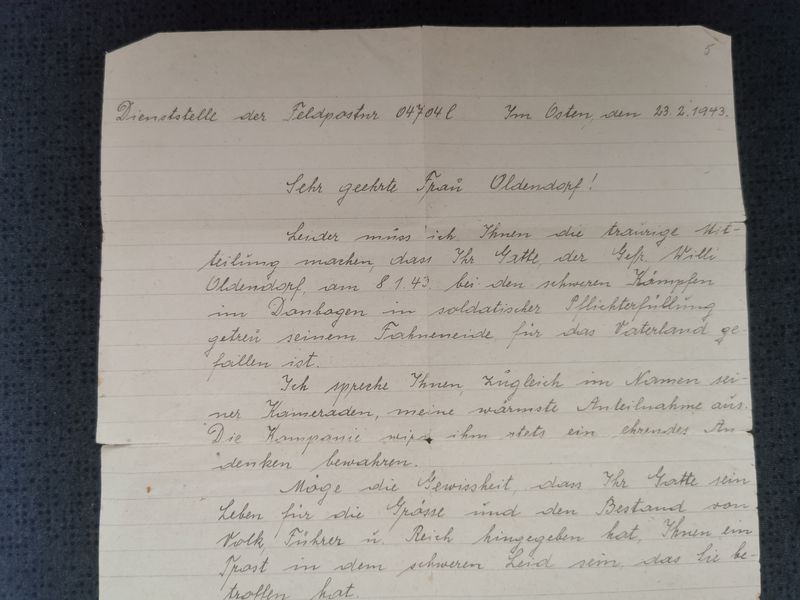 5
Dienststelle der Feldpostnr 04704C Im Osten, den 23.2.1943.
Sehr geehrte Frau Oldendorf!
Leider muss ich Ihnen die traurige Mit-
teilung machen, dass Ihr Gatte, der Gefr. Willi
Oldendorf, am 8.1.43. bei den schweren Kämpfen
im Donbogen in soldatischer Pflichterfüllung
getreu seinem Fahneneide für das Vaterland ge-
fallen ist.
Ich spreche Ihnen, zugleich im Namen sei-
ner Kameraden, meine wärmste Anteilnahme aus.
Die Kompanie wird ihm stets ein ehrendes An-
denken bewahren.
Möge die Gewissheit, dass Ihr Gatte sein
Leben für die Grösse und den Bestand von
Volk, Führer u. Reich hingegeben hat, Ihnen ein
Trost in dem schweren Leid sein, das Sie be-
troffen hat.